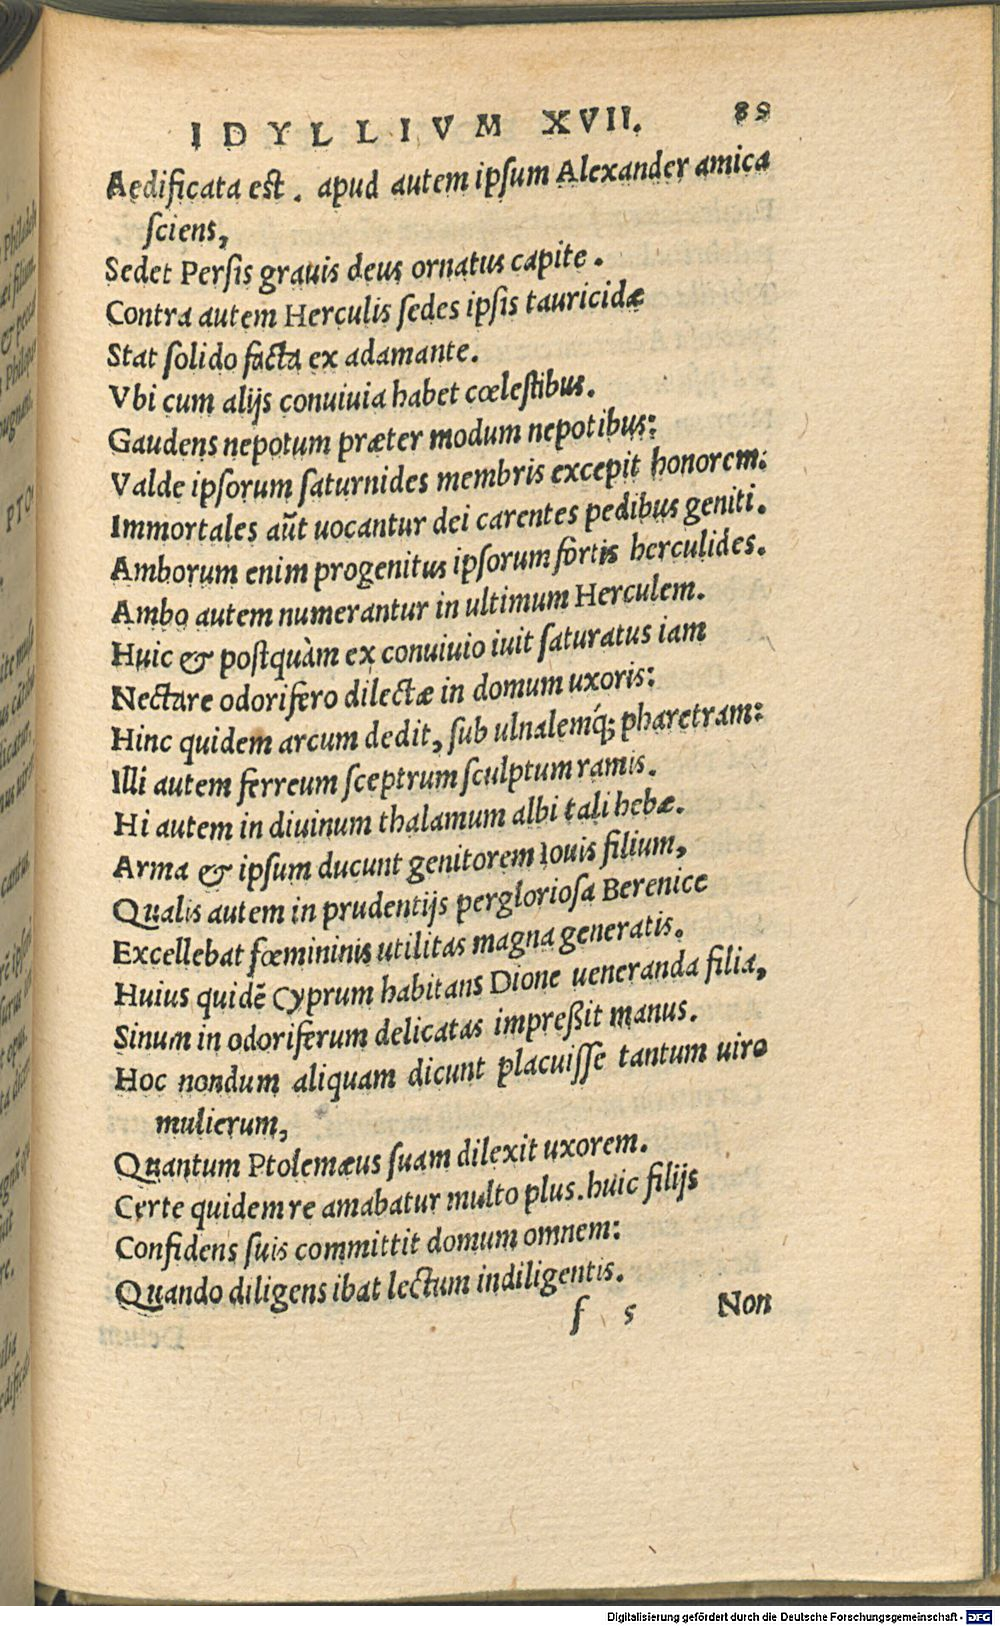 IDYLLIVM XVII. 89
Aedificata est. apud autem ipsum Alexander amica
sciens,
Sedet Persis grauis deus ornatus capite.
Contra autem Herculis sedes ipsis tauricidæ
Stat solido facta ex adamante.
Vbi cum alijs conuiuia habet cœlestibus.
Gaudens nepotum præter modum nepotibus:
Valde ipsorum saturnides membris excepit honorem:
Immortales aũt uocantur dei carentes pedibus geniti.
Amborum enim progenitus ipsorum fortis herculides.
Ambo autem numerantur in ultimum Herculem.
Huic & postquàm ex conuiuio iuit saturatus iam
Nectare odorifero dilectæ in domum uxoris:
Hinc quidem arcum dedit, sub ulnalemq́; pharetram:
Illi autem ferreum sceptrum sculptum ramis.
Hi autem in diuinum thalamum albi tali hebæ.
Arma & ipsum ducunt genitorem Iouis filium,
Qualis autem in prudentijs pergloriosa Berenice
Excellebat fœmininis utilitas magna generatis.
Huius quidẽ Cyprum habitans Dione ueneranda filia,
Sinum in odoriferum delicatas impreßit manus.
Hoc nondum aliquam dicunt placuisse tantum uiro
mulierum,
Quantum Ptolemæus suam dilexit uxorem.
Certe quidem re amabatur multo plus. huic filijs
Confidens suis committit domum omnem:
Quando diligens ibat lectum indiligentis.
f 5 Non
Digitalisierung gefördert durch die Deutsche Forschungsgemeinschaft - DFG